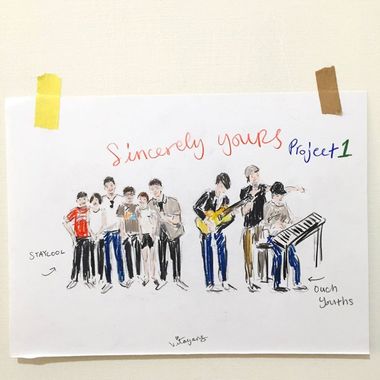 Sincerely yours
Project 1
STAYCOOL
Ouch
Youths